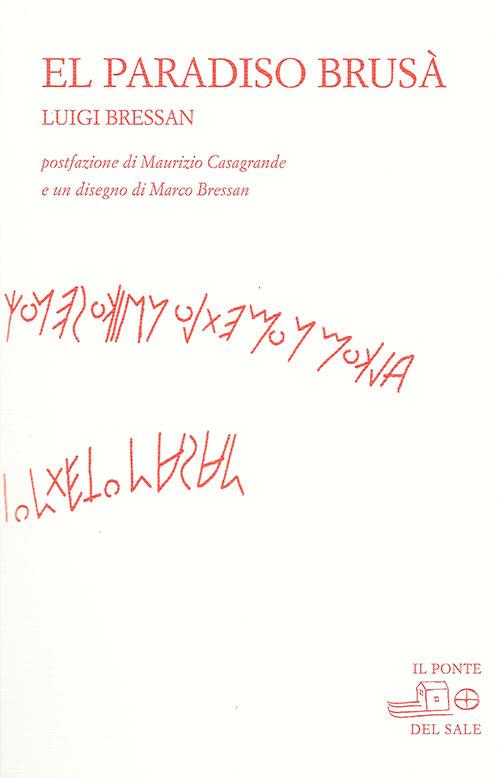 EL PARADISO BRUSÀ
LUIGI BRESSAN
postfazione di Maurizio Casagrande
e un disegno di Marco Bressan
IL PONTE
DEL SALE